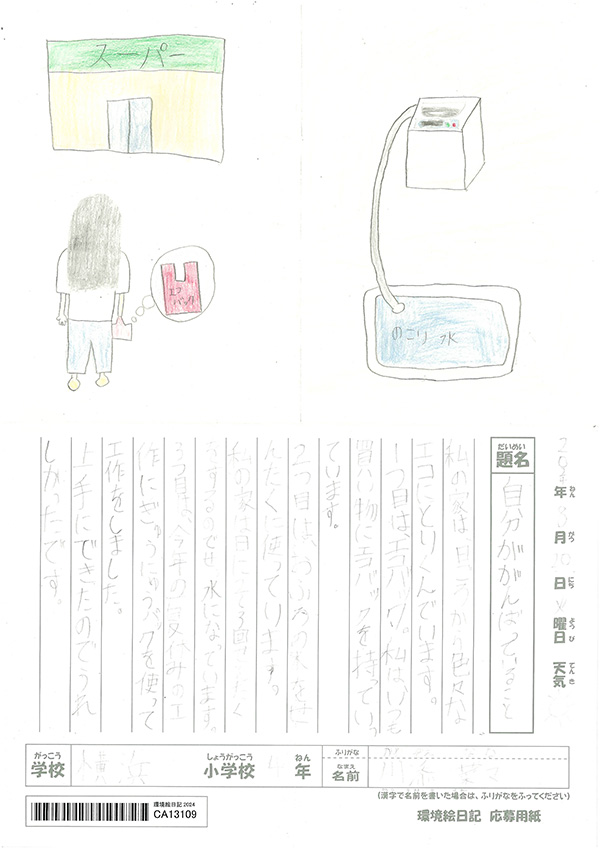 スーパー
エコ
バック
のこり水
だいめい
題名
自分ががんばっていること
年 ねん
月 がつ
日 にち
曜日 ようび
天気 てんき
私の家は日ごろから色々な
エコにとりくんでいます。
1つ目は、エコバック。私はいつも
買い物にエコバックを持ってい
ています。
2つ目は、
んたくに使っています。
私の家は
をするので
3つ目は、今年の夏休みの工
作にぎゅうにゅうパックを使って
工作をしました。
上手にできたのでうれ
しかったです。
がっこう
学校
横浜
しょうがっこう
小学校
4
ねん
年
ふりがな
なまえ
名前
(漢字で名前を書いた場合は、ふりがなをふってください)
環境絵日記 2024
CA13109
環境絵日記 応募用紙